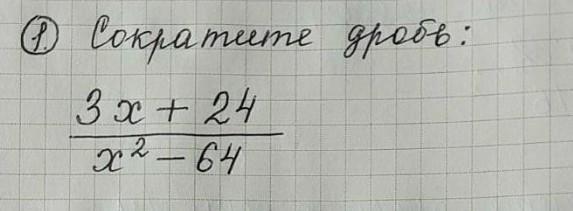 1. Сократите дробь:
3x + 24
x² - 64